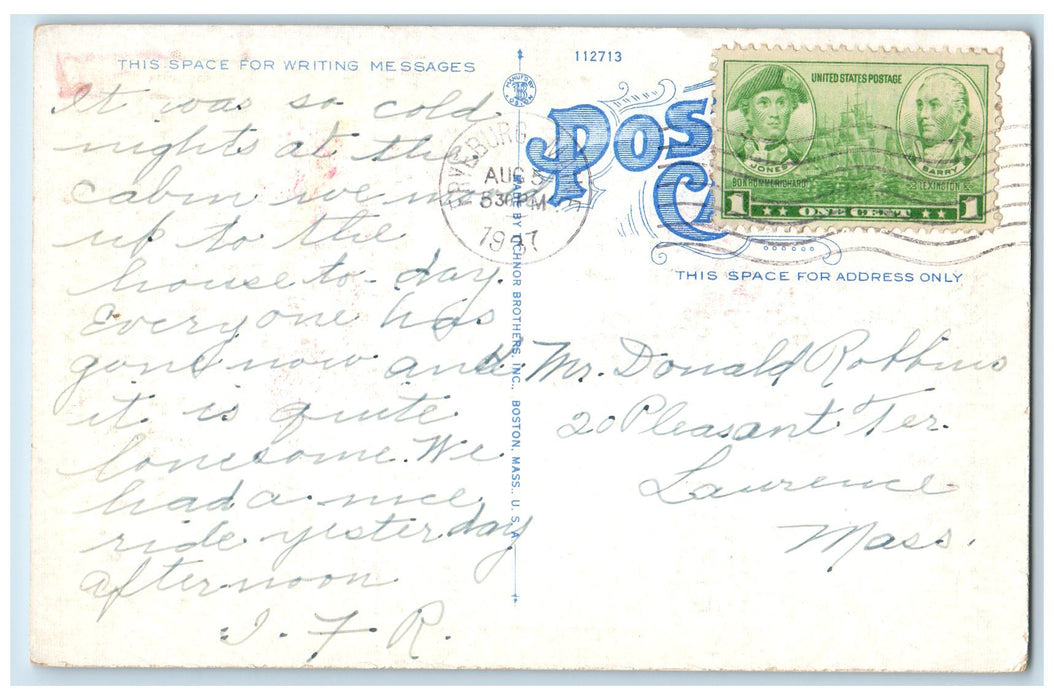 THIS SPACE FOR WRITING MESSAGES
It was so cold
nights at the
cabin we
up to the
house to-day.
Everyone has
gone now and
it is quite
lonesome. We
had a nice
ride yesterday
afternoon
I. F. R.
MANUF'D BY
BOSTON
MADE BY TICHNOR BROTHERS, INC., BOSTON, MASS., U. S. A.
112713
AUG 5
830PM
POS
CA
UNITED STATES POSTAGE
JONES
BARRY
BONHOMME RICHARD
LEXINGTON
1 ONE CENT 1
THIS SPACE FOR ADDRESS ONLY
Mr. Donald Robbins
20 Pleasant Ter.
Lawrence
Mass.